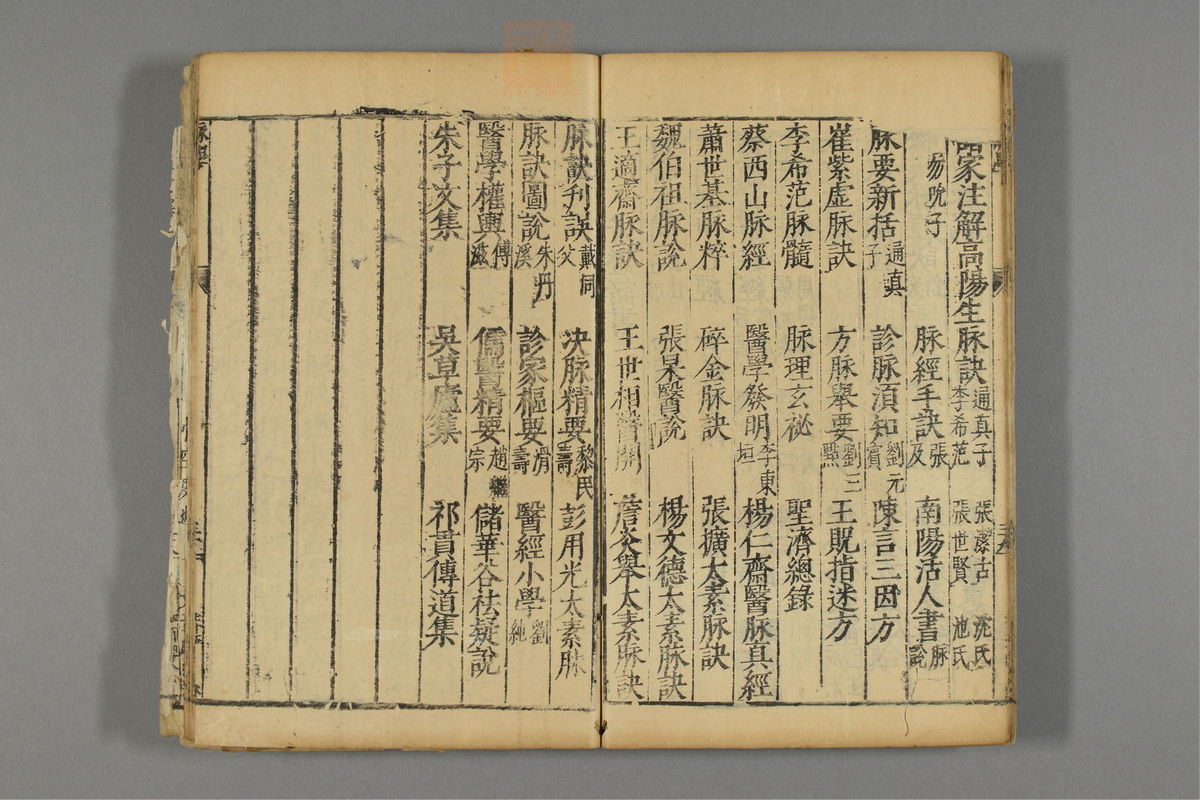 諸家注解高陽生脉訣 通真子 李希范 張潔古 張世賢 沈氏 池氏
勿聴子 脉經手訣 張及 南陽活人書 脉說
脉要新括 通真子 診脉須知 劉元賓 陳言三因方
崔紫虛脉訣 方脉舉要 劉三點 王貺指迷方
李希范脉髓 脉理玄祕 聖濟總錄
蔡西山脉經 醫學發明 李東垣 楊仁齋醫脉真經
蕭世基脉粹 碎金脉訣 張擴太素脉訣
魏伯祖脉說 張杲醫說 楊文德太素脉訣
王適齋脉訣 王世相醫開 詹炎舉太素脉訣
脉訣刋誤 戴同父 決脉精要 黎民壽 彭用光太素脉
脉訣圖說 朱丹溪 診家樞要 滑壽 醫經小學 劉純
醫學權輿 傅滋 儒醫精要 趙繼宗 儲華谷祛疑說
朱子文集 吳草廬集 祁貫傳道集